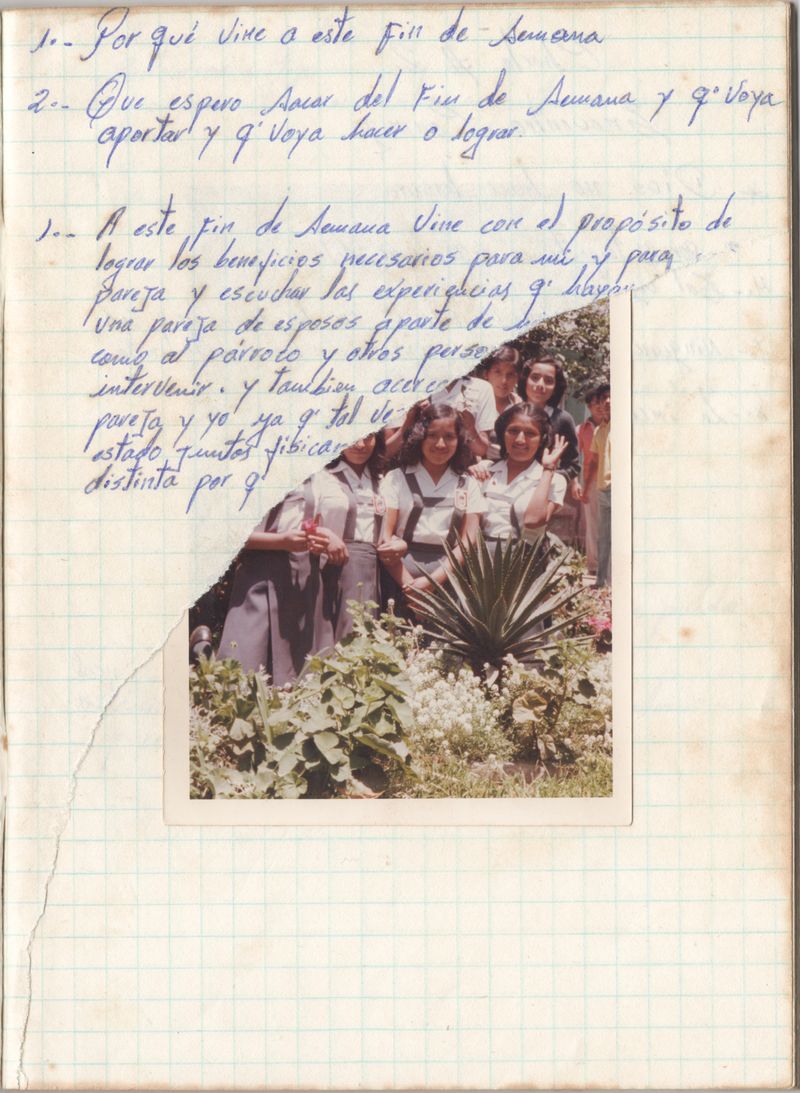 1.- Por qué vine a este Fin de Semana
2.- Que espero sacar del Fin de Semana y q' voya
aportar y q' voya hacer o lograr.
1.- A este Fin de Semana Vine con el propósito de
lograr los beneficios necesarios para mi y para
pareja y escuchar las experiencias q' hayan
una pareja de esposos aparte de
como al párroco y otros perso
intervenir. y tambien acerca
pareja y yo ya q' tal ve
estado juntos fisica
distinta por q'